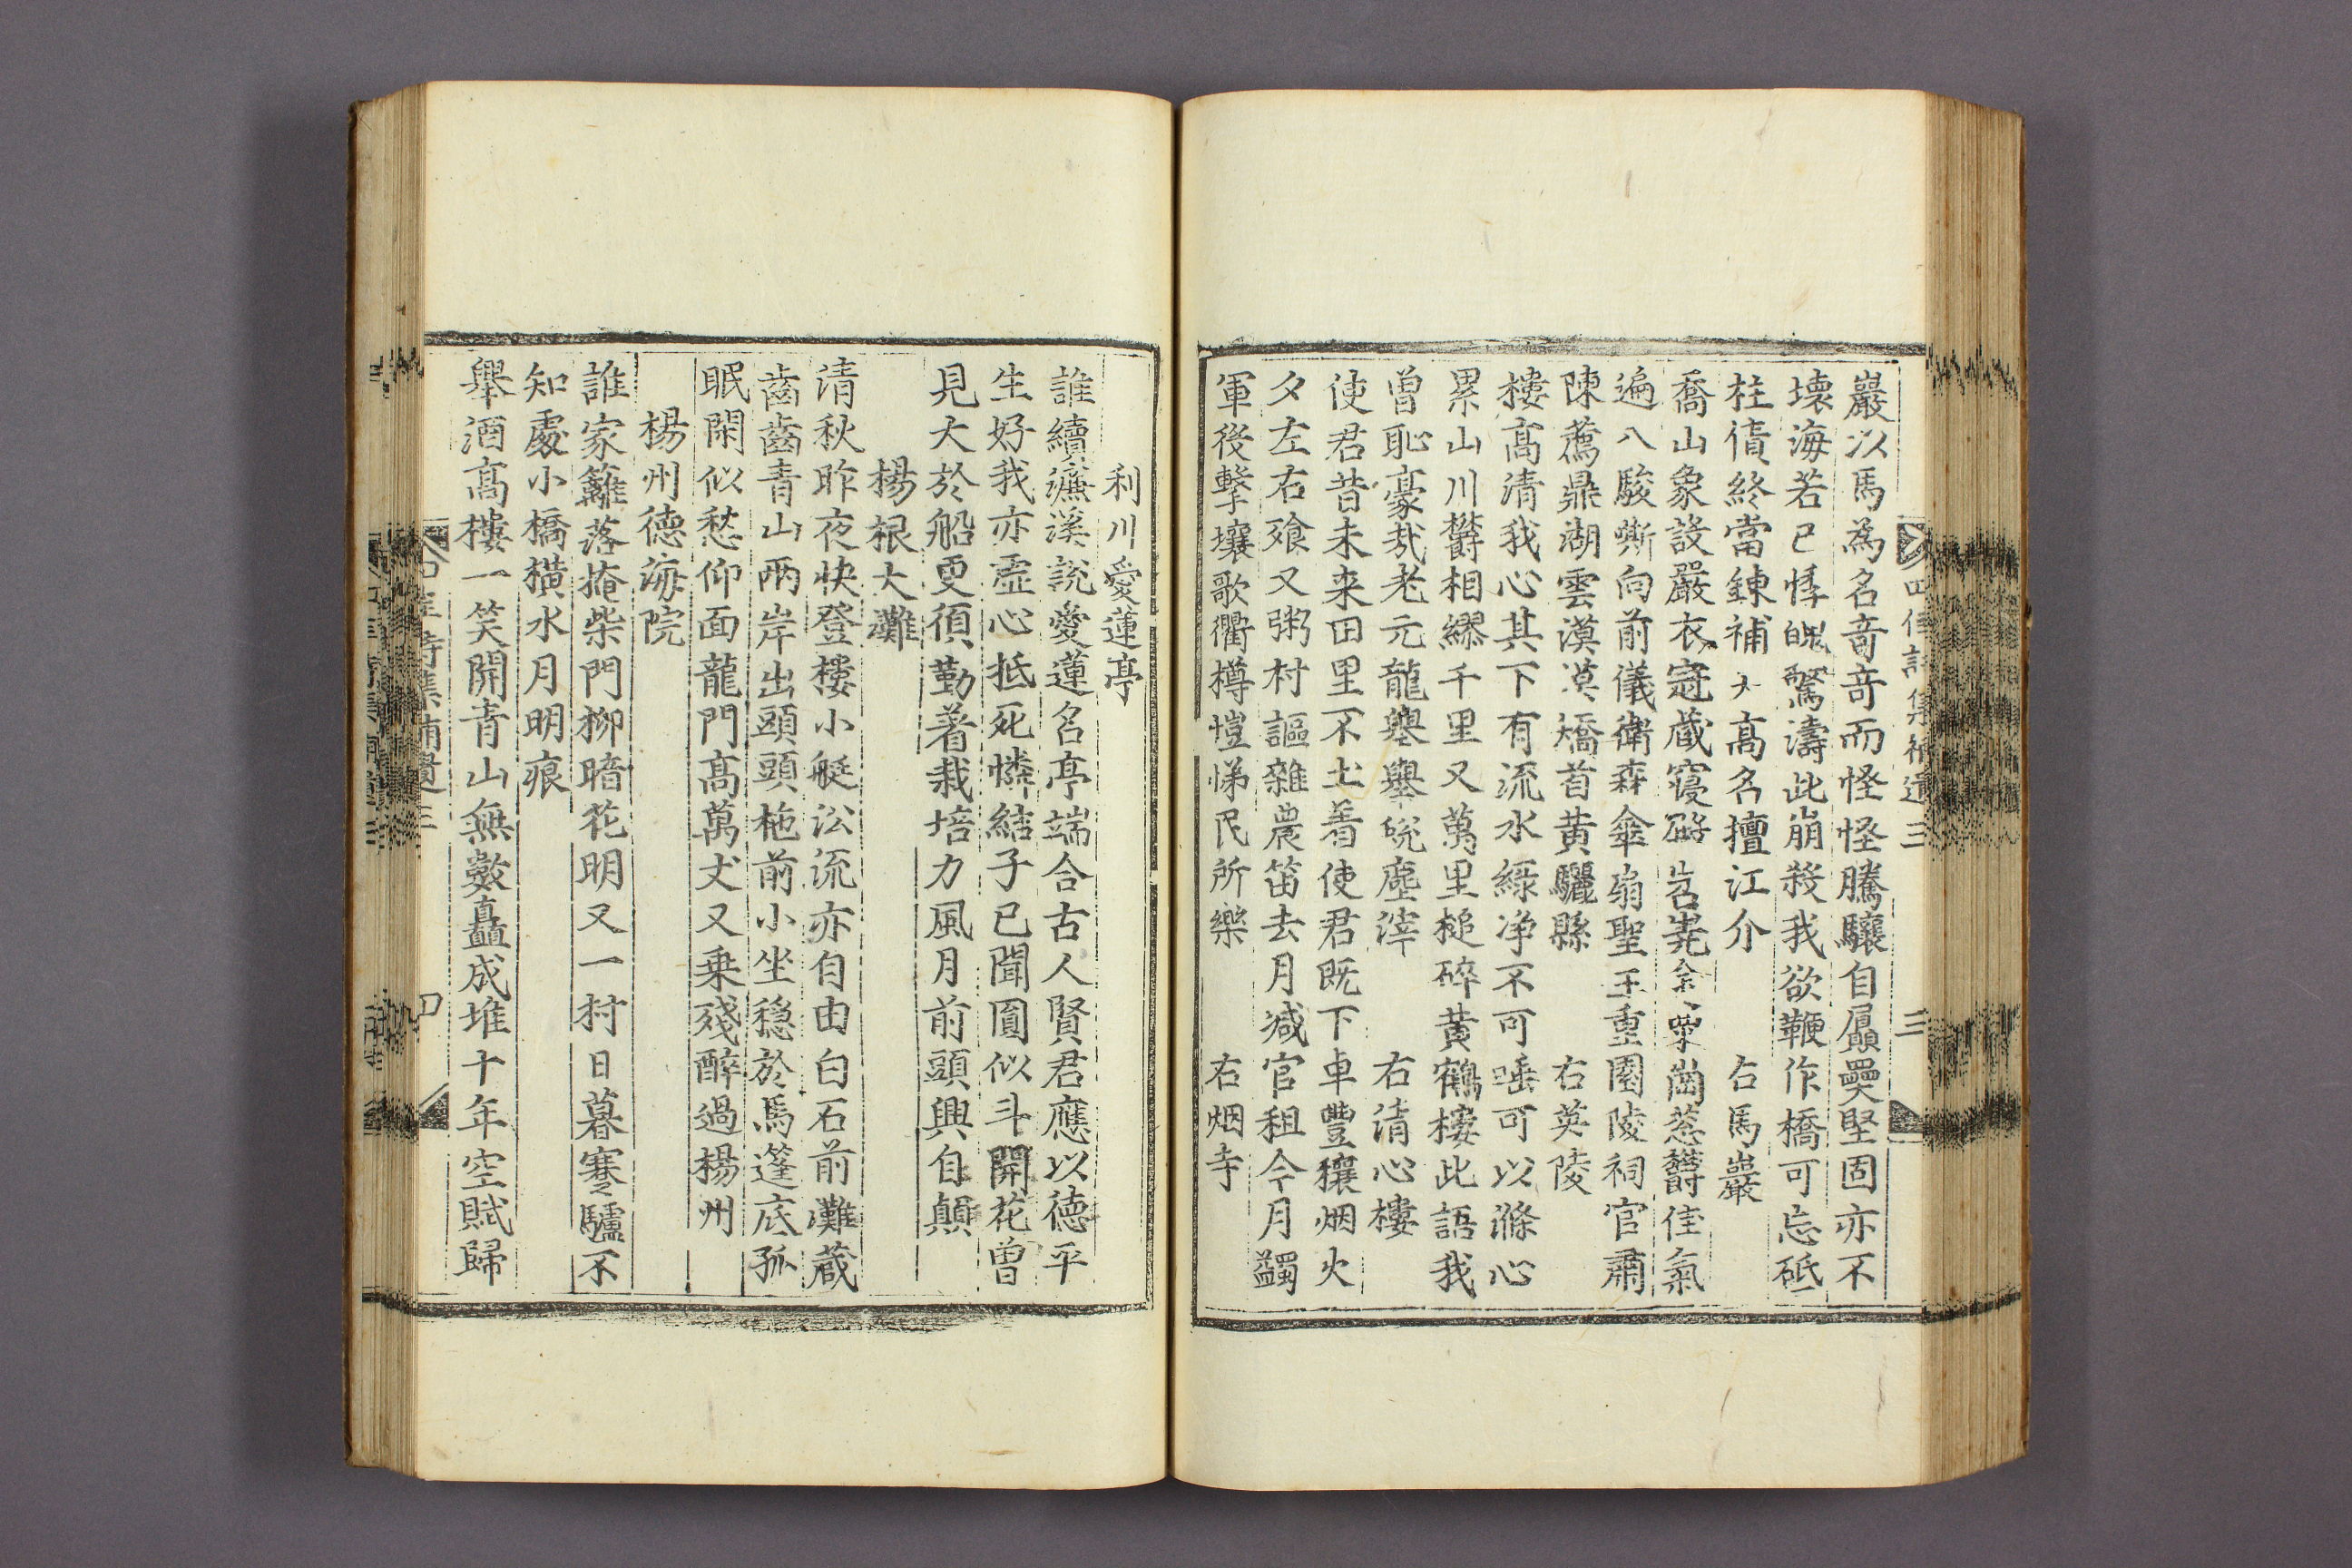 四佳詩集補遺三 三
巖以馬為名竒竒而怪怪騰驤自屭奰堅固亦不
壊海若已悸魄驚濤此崩殺我欲鞭作橋可忘砥
柱倩終當鍊補大高名擅江介 右馬巖
喬山象設嚴衣冠蔵寝岧嶤 欝佳氣
遍八駿嘶向前儀衛森傘扇聖王重園陵祠官肅
陳薦鼎湖雲漠漠矯首黄驪縣 右英陵
樓髙清我心其下有流水綠净不可唾可以滌心
累山川欝相繆千里又萬里槌碎黄鶴樓此語我
曽恥豪㢤老元龍舉舉晩塵滓 右清心樓
使君昔未来田里不土着使君既下車豐穰烟火
夕左右飱又粥村謳雜農笛去月减官租今月蠲
軍後擊壤歌衢樽愷悌民所樂 右烟寺
利川愛蓮亭
誰續濂溪説愛蓮名亭端合古人賢君應以徳平
生好我亦虚心抵死憐結子已聞圓似斗開花曽
見大於船更須勤着栽培力風月前頭興自顛
楊根大灘
清秋昨夜快登樓小艇沿流亦自由白石前灘蔵
齒齒青山兩岸出頭頭柂前小坐穏於馬篷底孤
眠閑似愁仰面龍門髙萬丈又乗殘醉過楊州
楊州德海院
誰家籬落掩柴門柳暗花明又一村日暮寒驢不
知處小橋橫水月明痕
舉酒高樓一笑開青山無數矗成堆十年空賦歸
四佳詩集補遺三 四